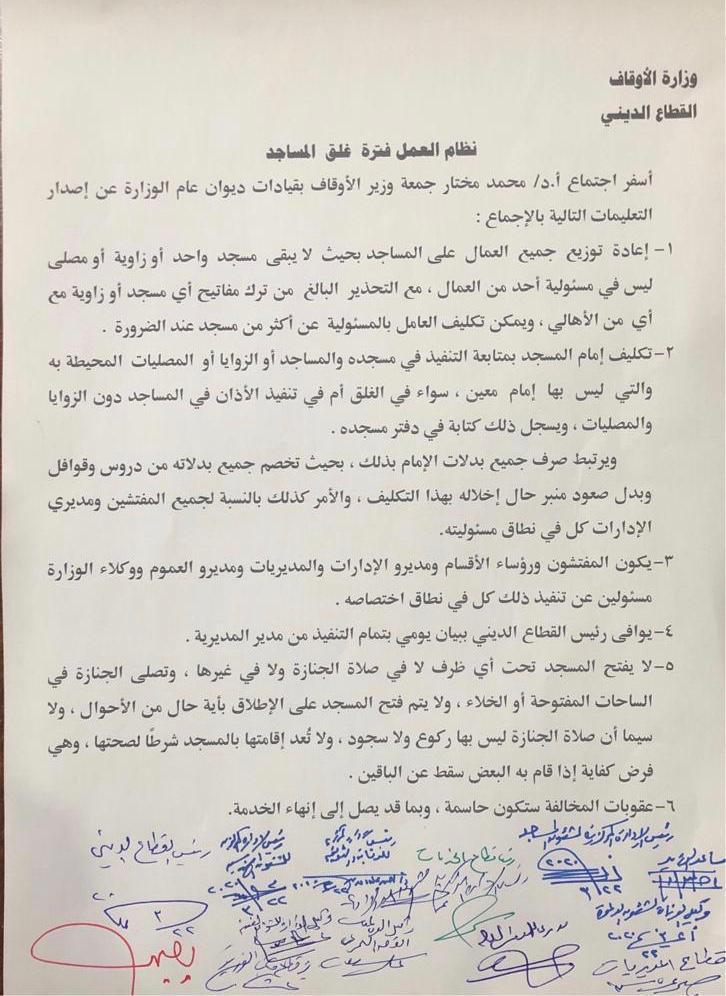 وزارة الأوقاف
القطاع الديني
نظام العمل فترة غلق المساجد
أسفر اجتماع أ.د/ محمد مختار جمعة وزير الأوقاف بقيادات ديوان عام الوزارة عن إصدار
التعليمات التالية بالإجماع :
١- إعادة توزيع جميع العمال على المساجد بحيث لا يبقى مسجد واحد أو زاوية أو مصلى
ليس في مسئولية أحد من العمال ، مع التحذير البالغ من ترك مفاتيح أي مسجد أو زاوية مع
أي من الأهالي ، ويمكن تكليف العامل بالمسئولية عن أكثر من مسجد عند الضرورة .
٢- تكليف إمام المسجد بمتابعة التنفيذ في مسجده والمساجد أو الزوايا أو المصليات المحيطة به
والتي ليس بها إمام معين ، سواء في الغلق أم في تنفيذ الأذان في المساجد دون الزوايا
والمصليات ، ويسجل ذلك كتابة في دفتر مسجده .
ويرتبط صرف جميع بدلات الإمام بذلك ، بحيث تخصم جميع بدلاته من دروس وقوافل
وبدل صعود منبر حال إخلاله بهذا التكليف ، والأمر كذلك بالنسبة لجميع المفتشين ومديري
الإدارات كل في نطاق مسئوليته.
٣- يكون المفتشون ورؤساء الأقسام ومديرو الإدارات والمديريات ومديرو العموم ووكلاء الوزارة
مسئولين عن تنفيذ ذلك كل في نطاق اختصاصه .
٤- يوافى رئيس القطاع الديني ببيان يومي بتمام التنفيذ من مدير المديرية .
٥- لا يفتح المسجد تحت أي ظرف لا في صلاة الجنازة ولا في غيرها ، وتصلى الجنازة في
الساحات المفتوحة أو الخلاء ، ولا يتم فتح المسجد على الإطلاق بأية حال من الأحوال ، ولا
سيما أن صلاة الجنازة ليس بها ركوع ولا سجود ، ولا تُعد إقامتها بالمسجد شرطًا لصحتها ، وهي
فرض كفاية إذا قام به البعض سقط عن الباقين .
٦- عقوبات المخالفة ستكون حاسمة ، وبما قد يصل إلى إنهاء الخدمة.
رئيس القطاع الديني